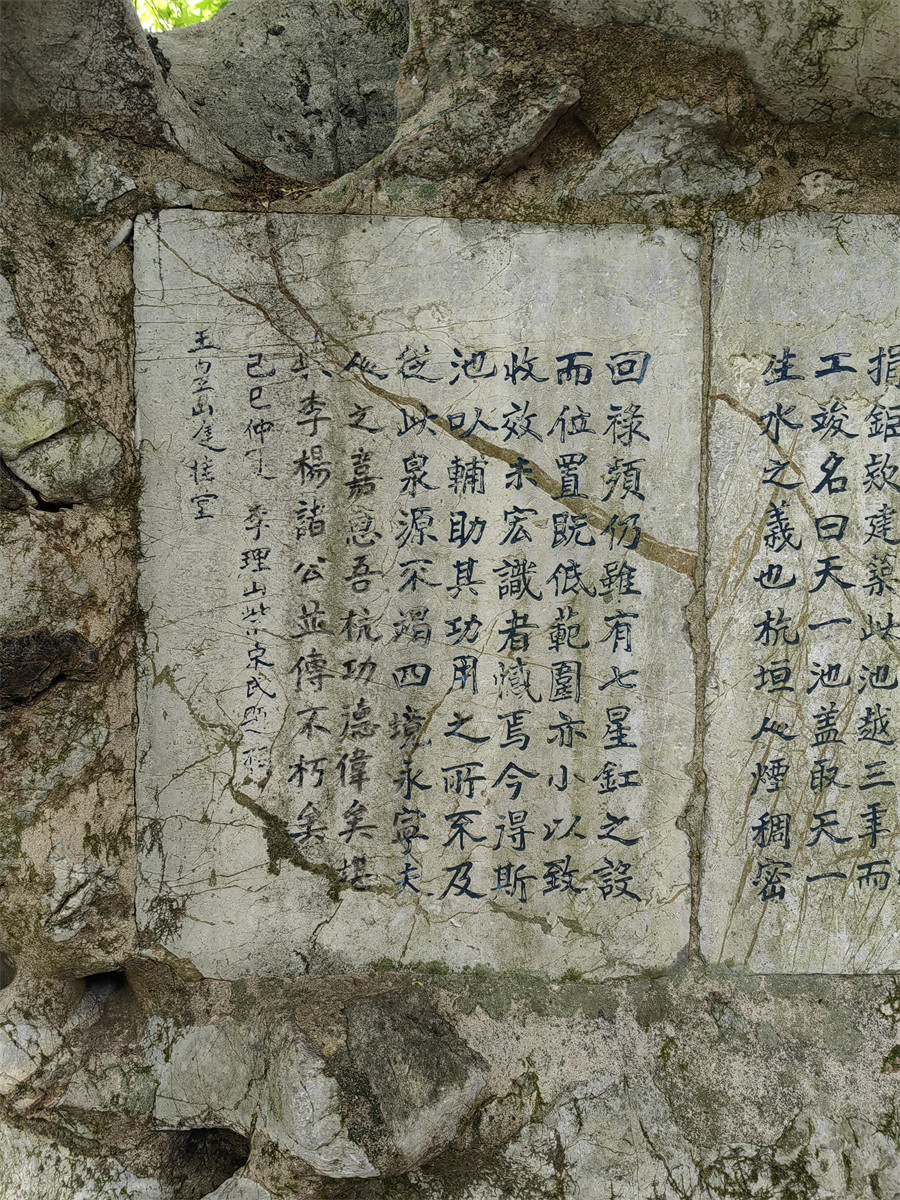 捐鉅款建築此池越三年而
工竣名曰天一池蓋取天一
生水之義也杭垣人煙稠密
回祿頻仍雖有七星缸之設
而位置既低範圍亦小以致
收效未宏識者憾焉今得斯
池以輔助其功用之所不及
從此泉源不竭四境永寧夫
人之嘉惠吾杭功德偉矣堪
與李楊諸公並傳不朽矣
己巳仲夏 李理山 宗民題
王 刻